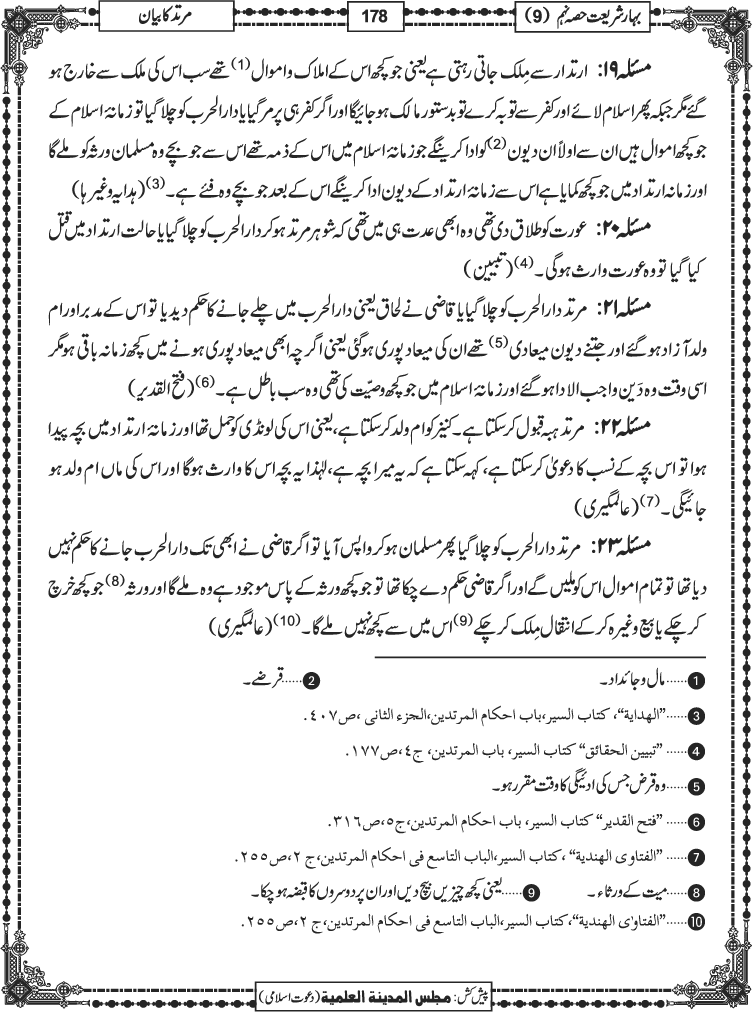 بہار شریعت حصہ نہم (9)
178
مرتد کا بیان
مسئلہ ۱۹: ارتدار سے مِلک جاتی رہتی ہے یعنی جو کچھ اس کے املاک و اموال (1) تھے سب اس کی ملک سے خارج ہو
گئے مگر جبکہ پھر اسلام لائے اور کفر سے توبہ کرے تو بدستور مالک ہو جائیگا اور اگر کفر ہی پر مر گیا یا دارالحرب کو چلا گیا تو زمانۂ اسلام کے
جو کچھ اموال ہیں ان سے اولاً ان دیون (2) کو ادا کرینگے جو زمانۂ اسلام میں اس کے ذمہ تھے اس سے جو بچے وہ مسلمان ورثہ کو ملے گا
اور زمانہ ارتداد میں جو کچھ کمایا ہے اس سے زمانۂ ارتداد کے دیون ادا کرینگے اس کے بعد جو بچے وہ فئے ہے۔ (3) (ہدایہ وغیرہا)
مسئلہ ۲۰: عورت کو طلاق دی تھی وہ ابھی عدت ہی میں تھی کہ شوہر مرتد ہو کر دارالحرب کو چلا گیا یا حالت ارتداد میں قتل
کیا گیا تو وہ عورت وارث ہوگی۔ (4) (تبیین)
مسئلہ ۲۱: مرتد دارالحرب کو چلا گیا یا قاضی نے لحاق یعنی دارالحرب میں چلے جانے کا حکم دیدیا تو اس کے مدبر اور ام
ولد آزاد ہو گئے اور جتنے دیون میعادی (5) تھے ان کی میعاد پوری ہوگئی یعنی اگرچہ ابھی میعاد پوری ہونے میں کچھ زمانہ باقی ہو مگر
اسی وقت وہ دَین واجب الادا ہو گئے اور زمانۂ اسلام میں جو کچھ وصیّت کی تھی وہ سب باطل ہے۔ (6) (فتح القدیر)
مسئلہ ۲۲: مرتد ہبہ قبول کر سکتا ہے۔ کنیز کو ام ولد کر سکتا ہے، یعنی اس کی لونڈی کو حمل تھا اور زمانۂ ارتداد میں بچہ پیدا
ہوا تو اس بچہ کے نسب کا دعویٰ کر سکتا ہے، کہہ سکتا ہے کہ یہ میرا بچہ ہے، لہٰذا یہ بچہ اس کا وارث ہوگا اور اس کی ماں ام ولد ہو
جائیگی۔ (7) (عالمگیری)
مسئلہ ۲۳: مرتد دارالحرب کو چلا گیا پھر مسلمان ہو کر واپس آیا تو اگر قاضی نے ابھی تک دارالحرب جانے کا حکم نہیں
دیا تھا تو تمام اموال اس کو ملیں گے اور اگر قاضی حکم دے چکا تھا تو جو کچھ ورثہ کے پاس موجود ہے وہ ملے گا اور ورثہ (8) جو کچھ خرچ
کر چکے یا بیع وغیرہ کر کے انتقال مِلک کر چکے (9) اس میں سے کچھ نہیں ملے گا۔ (10) (عالمگیری)
1 ......مال و جائداد۔ 2 ......قرضے۔
3 ......"الھدایة"، کتاب السیر،باب احکام المرتدین،الجزء الثانی ،ص٤٠٧.
4 ......"تبیین الحقائق" کتاب السیر، باب المرتدین، ج٤،ص١٧٧.
5 ......وہ قرض جس کی ادئیگی کا وقت مقرر ہو۔
6 ......"فتح القدیر" کتاب السیر، باب احکام المرتدین،ج٥،ص٣١٦.
7 ......"الفتاوی الھندیة" ،کتاب السیر،الباب التاسع فی احکام المرتدین،ج ٢،ص٢٥٥.
8 ......میت کے ورثاء۔ 9 ......یعنی کچھ چیزیں بیچ دیں اور ان پر دوسروں کا قبضہ ہو چکا۔
10 ......"الفتاوٰی الھندیة"،کتاب السیر،الباب التاسع فی احکام المرتدین،ج ٢،ص٢٥٥.
پیش کش: مجلس المدینۃ العلمیۃ (دعوت اسلامی)